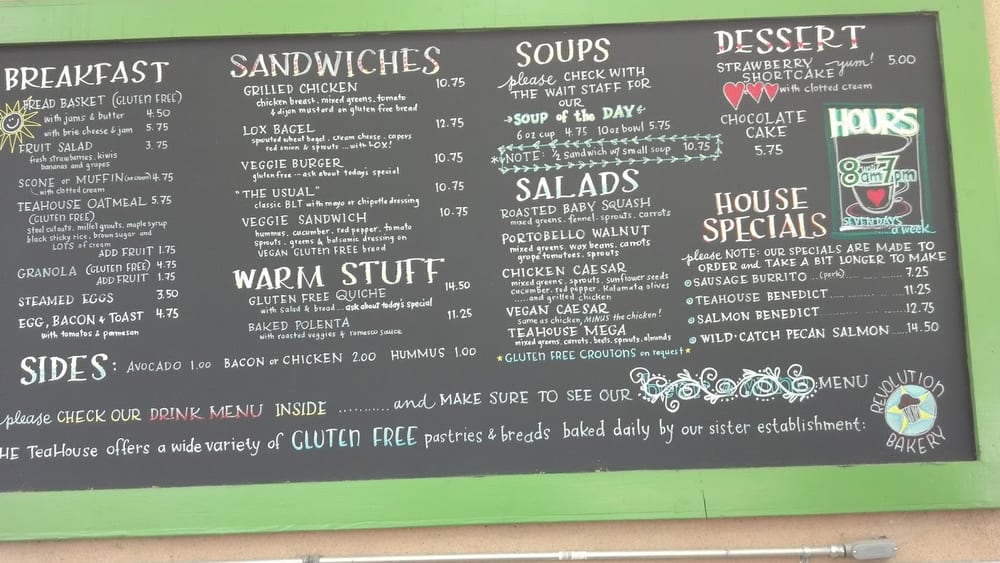 BREAKFAST
BREAD BASKET (GLUTEN FREE)
with jams & butter 4.50
with brie cheese & jam 5.75
FRUIT SALAD 3.75
fresh strawberries, kiwis
bananas and grapes
SCONE or MUFFIN 4.75
with clotted cream
TEAHOUSE OATMEAL 5.75
(GLUTEN FREE)
steel cut oats, millet grouts, maple syrup
black sticky rice, brown sugar and
LOTS of cream
ADD FRUIT 1.75
GRANOLA (GLUTEN FREE) 4.75
ADD FRUIT 1.75
STEAMED EGGS 3.50
EGG, BACON & TOAST 4.75
with tomatos & parmesan
SANDWICHES
GRILLED CHICKEN 10.75
chicken breast, mixed greens, tomato
& dijon mustard on gluten free bread
LOX BAGEL 12.75
sprouted wheat bagel, cream cheese, capers
red onion & sprouts ...with LOX!
VEGGIE BURGER 10.75
gluten free ... ask about today's special
"THE USUAL" 10.75
classic BLT with mayo or chipotle dressing
VEGGIE SANDWICH 10.75
hummus, cucumber, red pepper, tomato
sprouts, greens & balsamic dressing on
VEGAN GLUTEN FREE bread
WARM STUFF
GLUTEN FREE QUICHE 14.50
with Salad & bread ...ask about today's special
BAKED POLENTA 11.25
with roasted veggies & romesco sauce
SOUPS
please CHECK WITH
THE WAIT STAFF FOR
OUR
SOUP of the DAY
6 oz cup 4.75 10oz bowl 5.75
*NOTE: ½ Sandwich w/ small soup 10.75
SALADS
ROASTED BABY SQUASH
mixed greens, fennel, sprouts, carrots
PORTOBELLO WALNUT
mixed greens, wax beans, carrots
grape tomatoes, sprouts
CHICKEN CAESAR
mixed greens, sprouts, sunflower seeds
cucumber, red pepper, Kalamata olives
.....and grilled chicken
VEGAN CAESAR
same as chicken, MINUS the chicken!
TEAHOUSE MEGA
mixed greens, carrots, beets, sprouts, almonds
*GLUTEN FREE CROUTONS on request*
DESSERT
STRAWBERRY yum! 5.00
SHORTCAKE
with clotted cream
CHOCOLATE
CAKE
5.75
HOURS
8am until 7pm
SEVEN DAYS
....a week
HOUSE
SPECIALS
please NOTE: OUR SPECIALS ARE MADE TO
ORDER and TAKE A BIT LONGER TO MAKE
SAUSAGE BURRITO ...(pork)... 7.25
TEAHOUSE BENEDICT ........ 11.25
SALMON BENEDICT ........ 12.75
WILD·CATCH PECAN SALMON ....14.50
SIDES: AVOCADO 1.00 BACON or CHICKEN 2.00 HUMMUS 1.00
please CHECK OUR DRINK MENU INSIDE ..........and MAKE SURE TO SEE OUR MENU
HE TeaHouse offers a wide variety of GLUTEN FREE pastries & breads baked daily by our sister establishment:
REVOLUTION
BAKERY